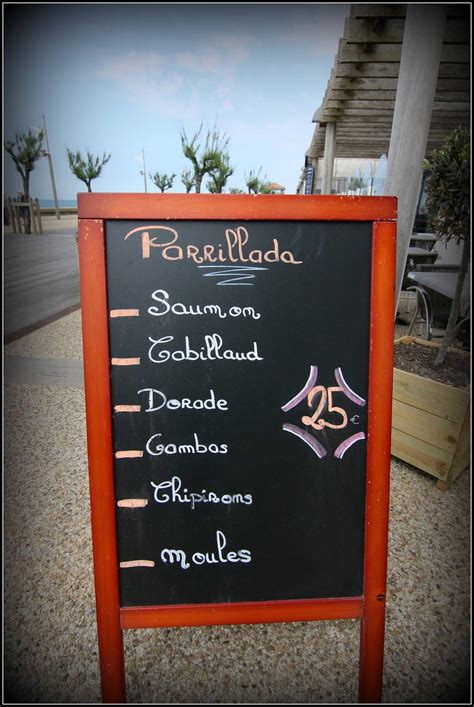 Parrillada
- Saumon
- Cabillaud
- Dorade
- Gambas
- Chipirons
- Moules
25 €